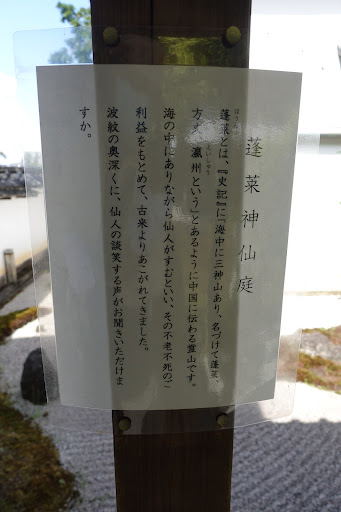 蓬莱神仙庭
蓬莱とは、『史記』に「海中に三神山あり、名づけて蓬莱、
方丈、瀛州という」とあるように中国に伝わる霊山です。
海の中にありながら仙人がすむといい、その不老不死のご
利益をもとめて、古来よりあこがれてきました。
波紋の奥深くに、仙人の談笑する声がお聞きいただけま
すか。